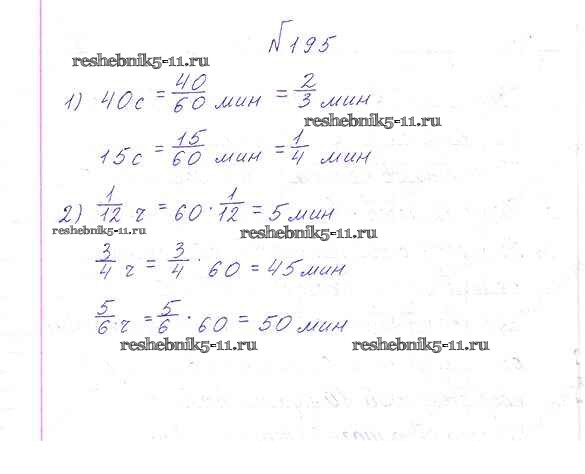 №195
reshebnik5-11.ru
1) 40с = 40/60 мин = 2/3 мин
reshebnik5-11.ru
15с = 15/60 мин = 1/4 мин
2) 1/12 ч = 60 · 1/12 = 5 мин
reshebnik5-11.ru reshebnik5-11.ru
3/4 ч = 3/4 · 60 = 45 мин
5/6 ч = 5/6 · 60 = 50 мин
reshebnik5-11.ru reshebnik5-11.ru